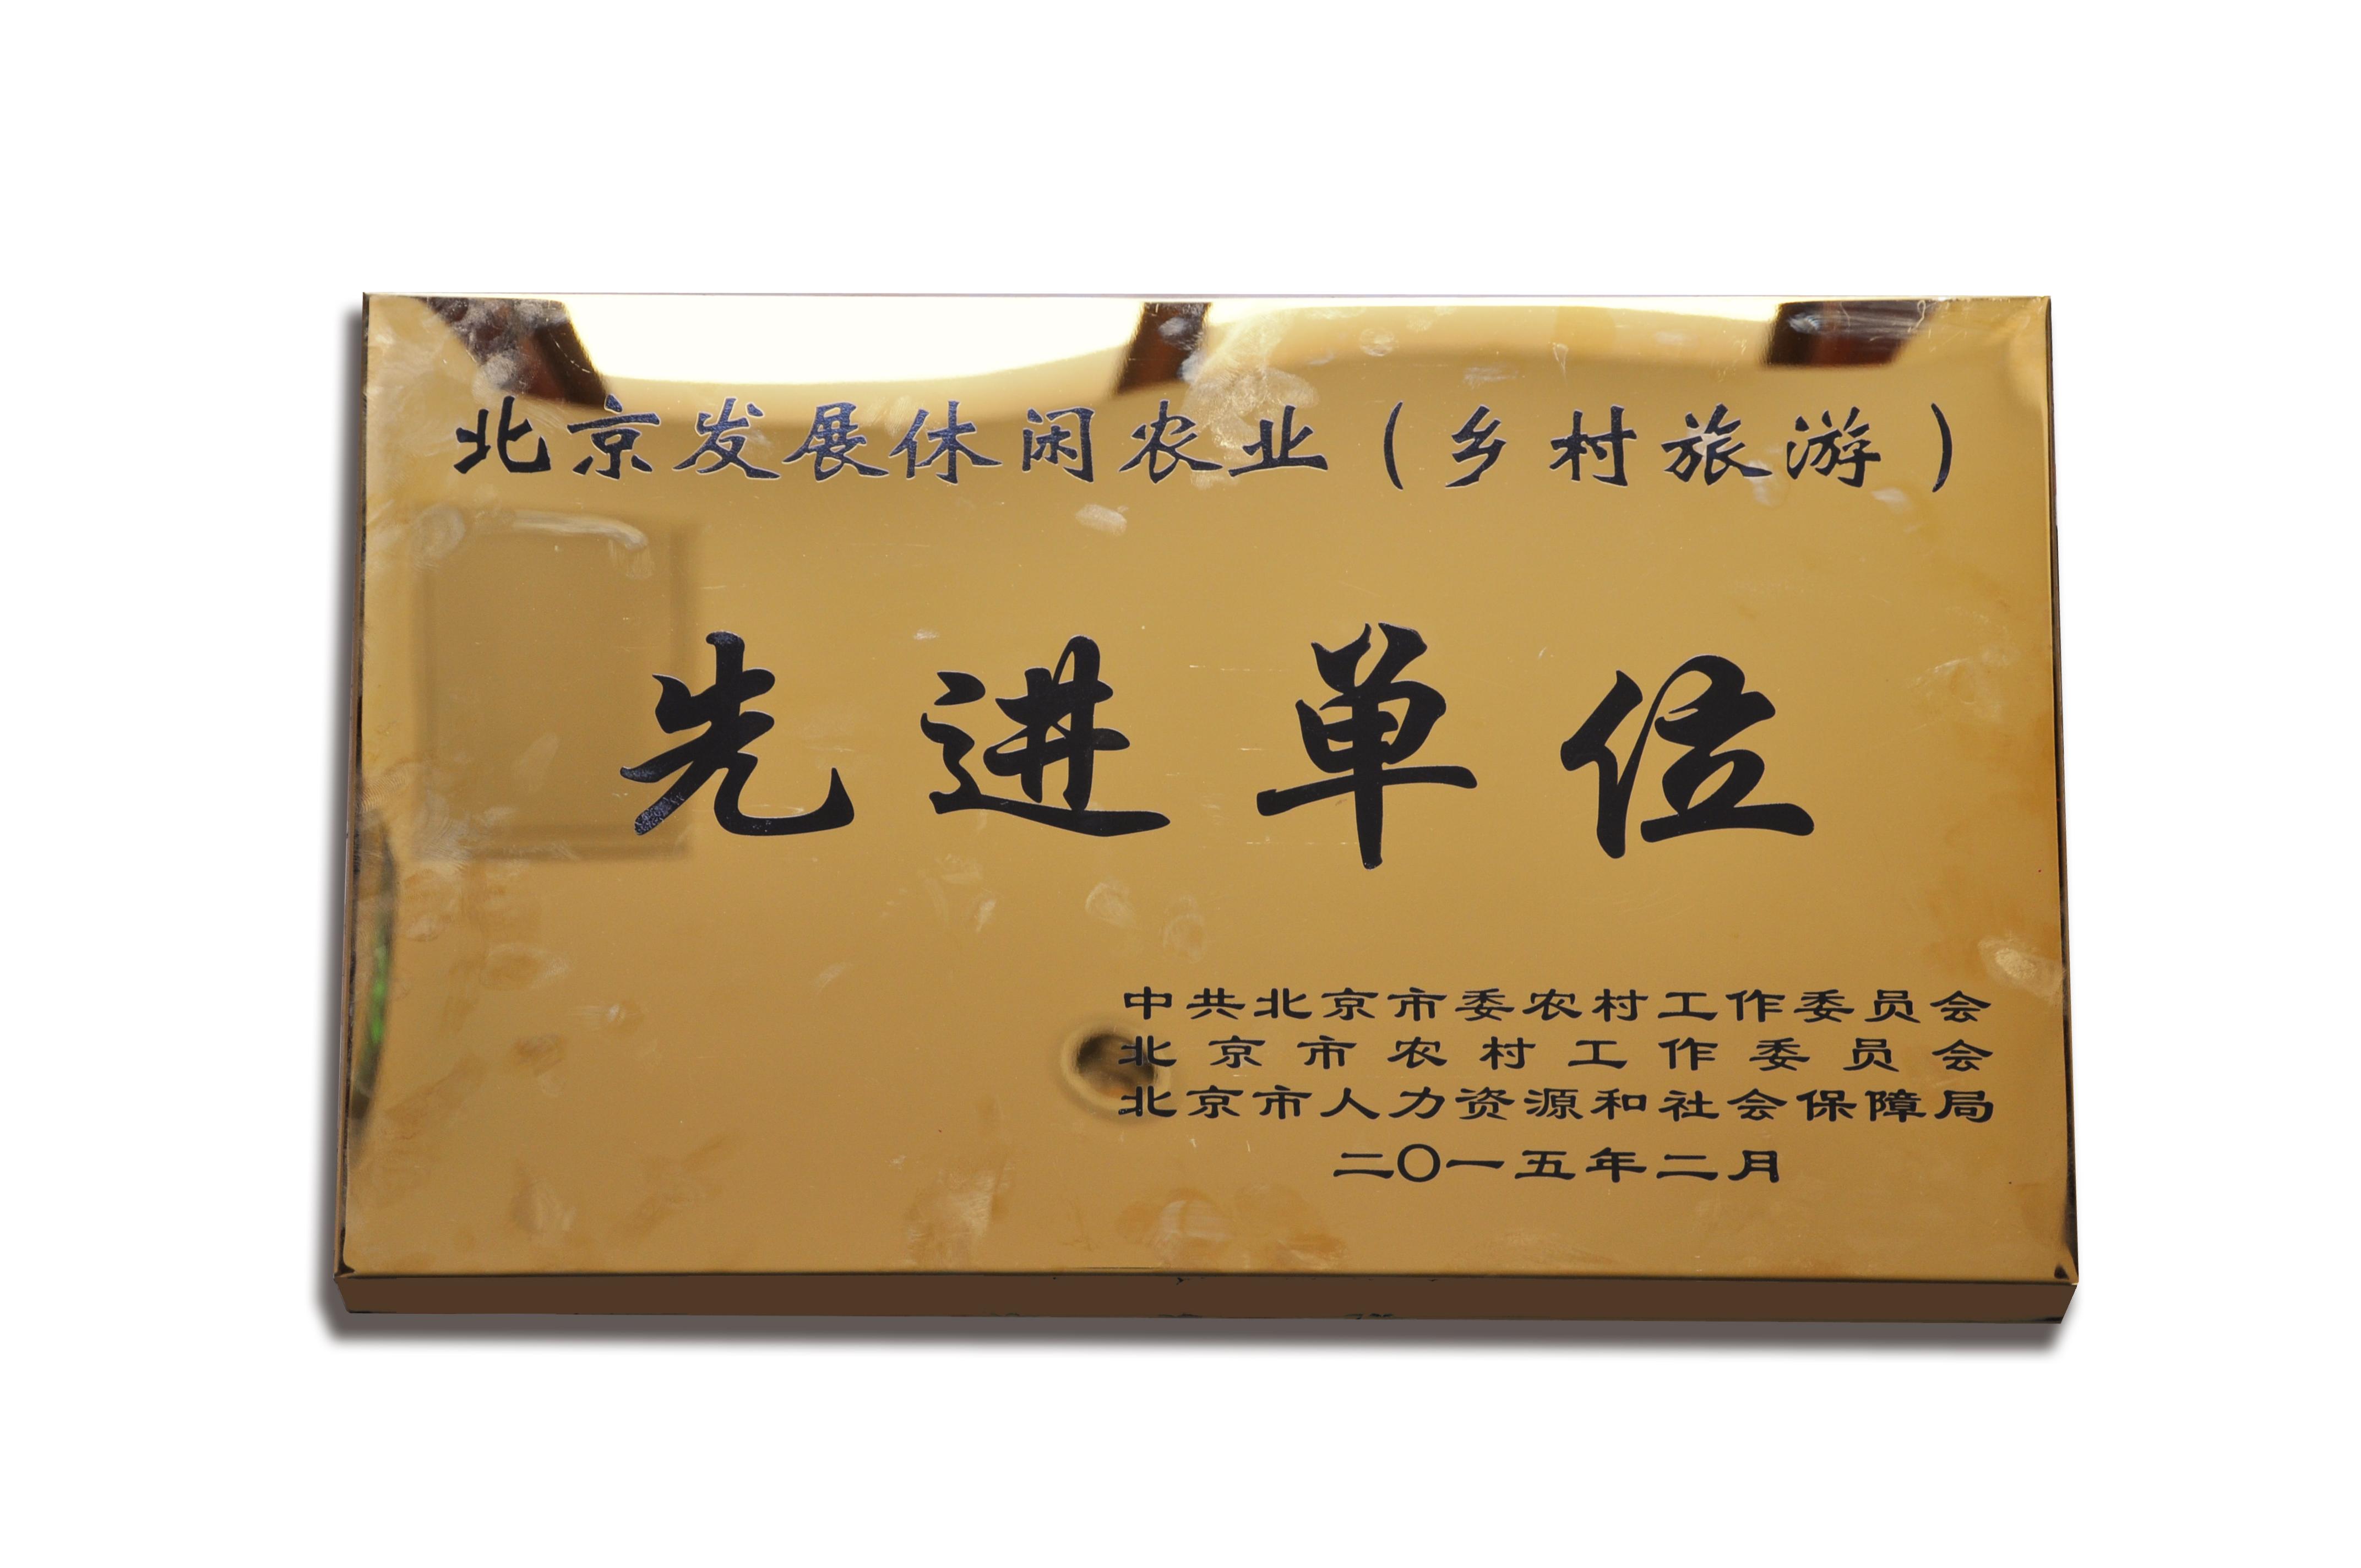 北京发展休闲农业（乡村旅游）
先进单位
中共北京市委农村工作委员会
北京市农村工作委员会
北京市人力资源和社会保障局
二〇一五年二月